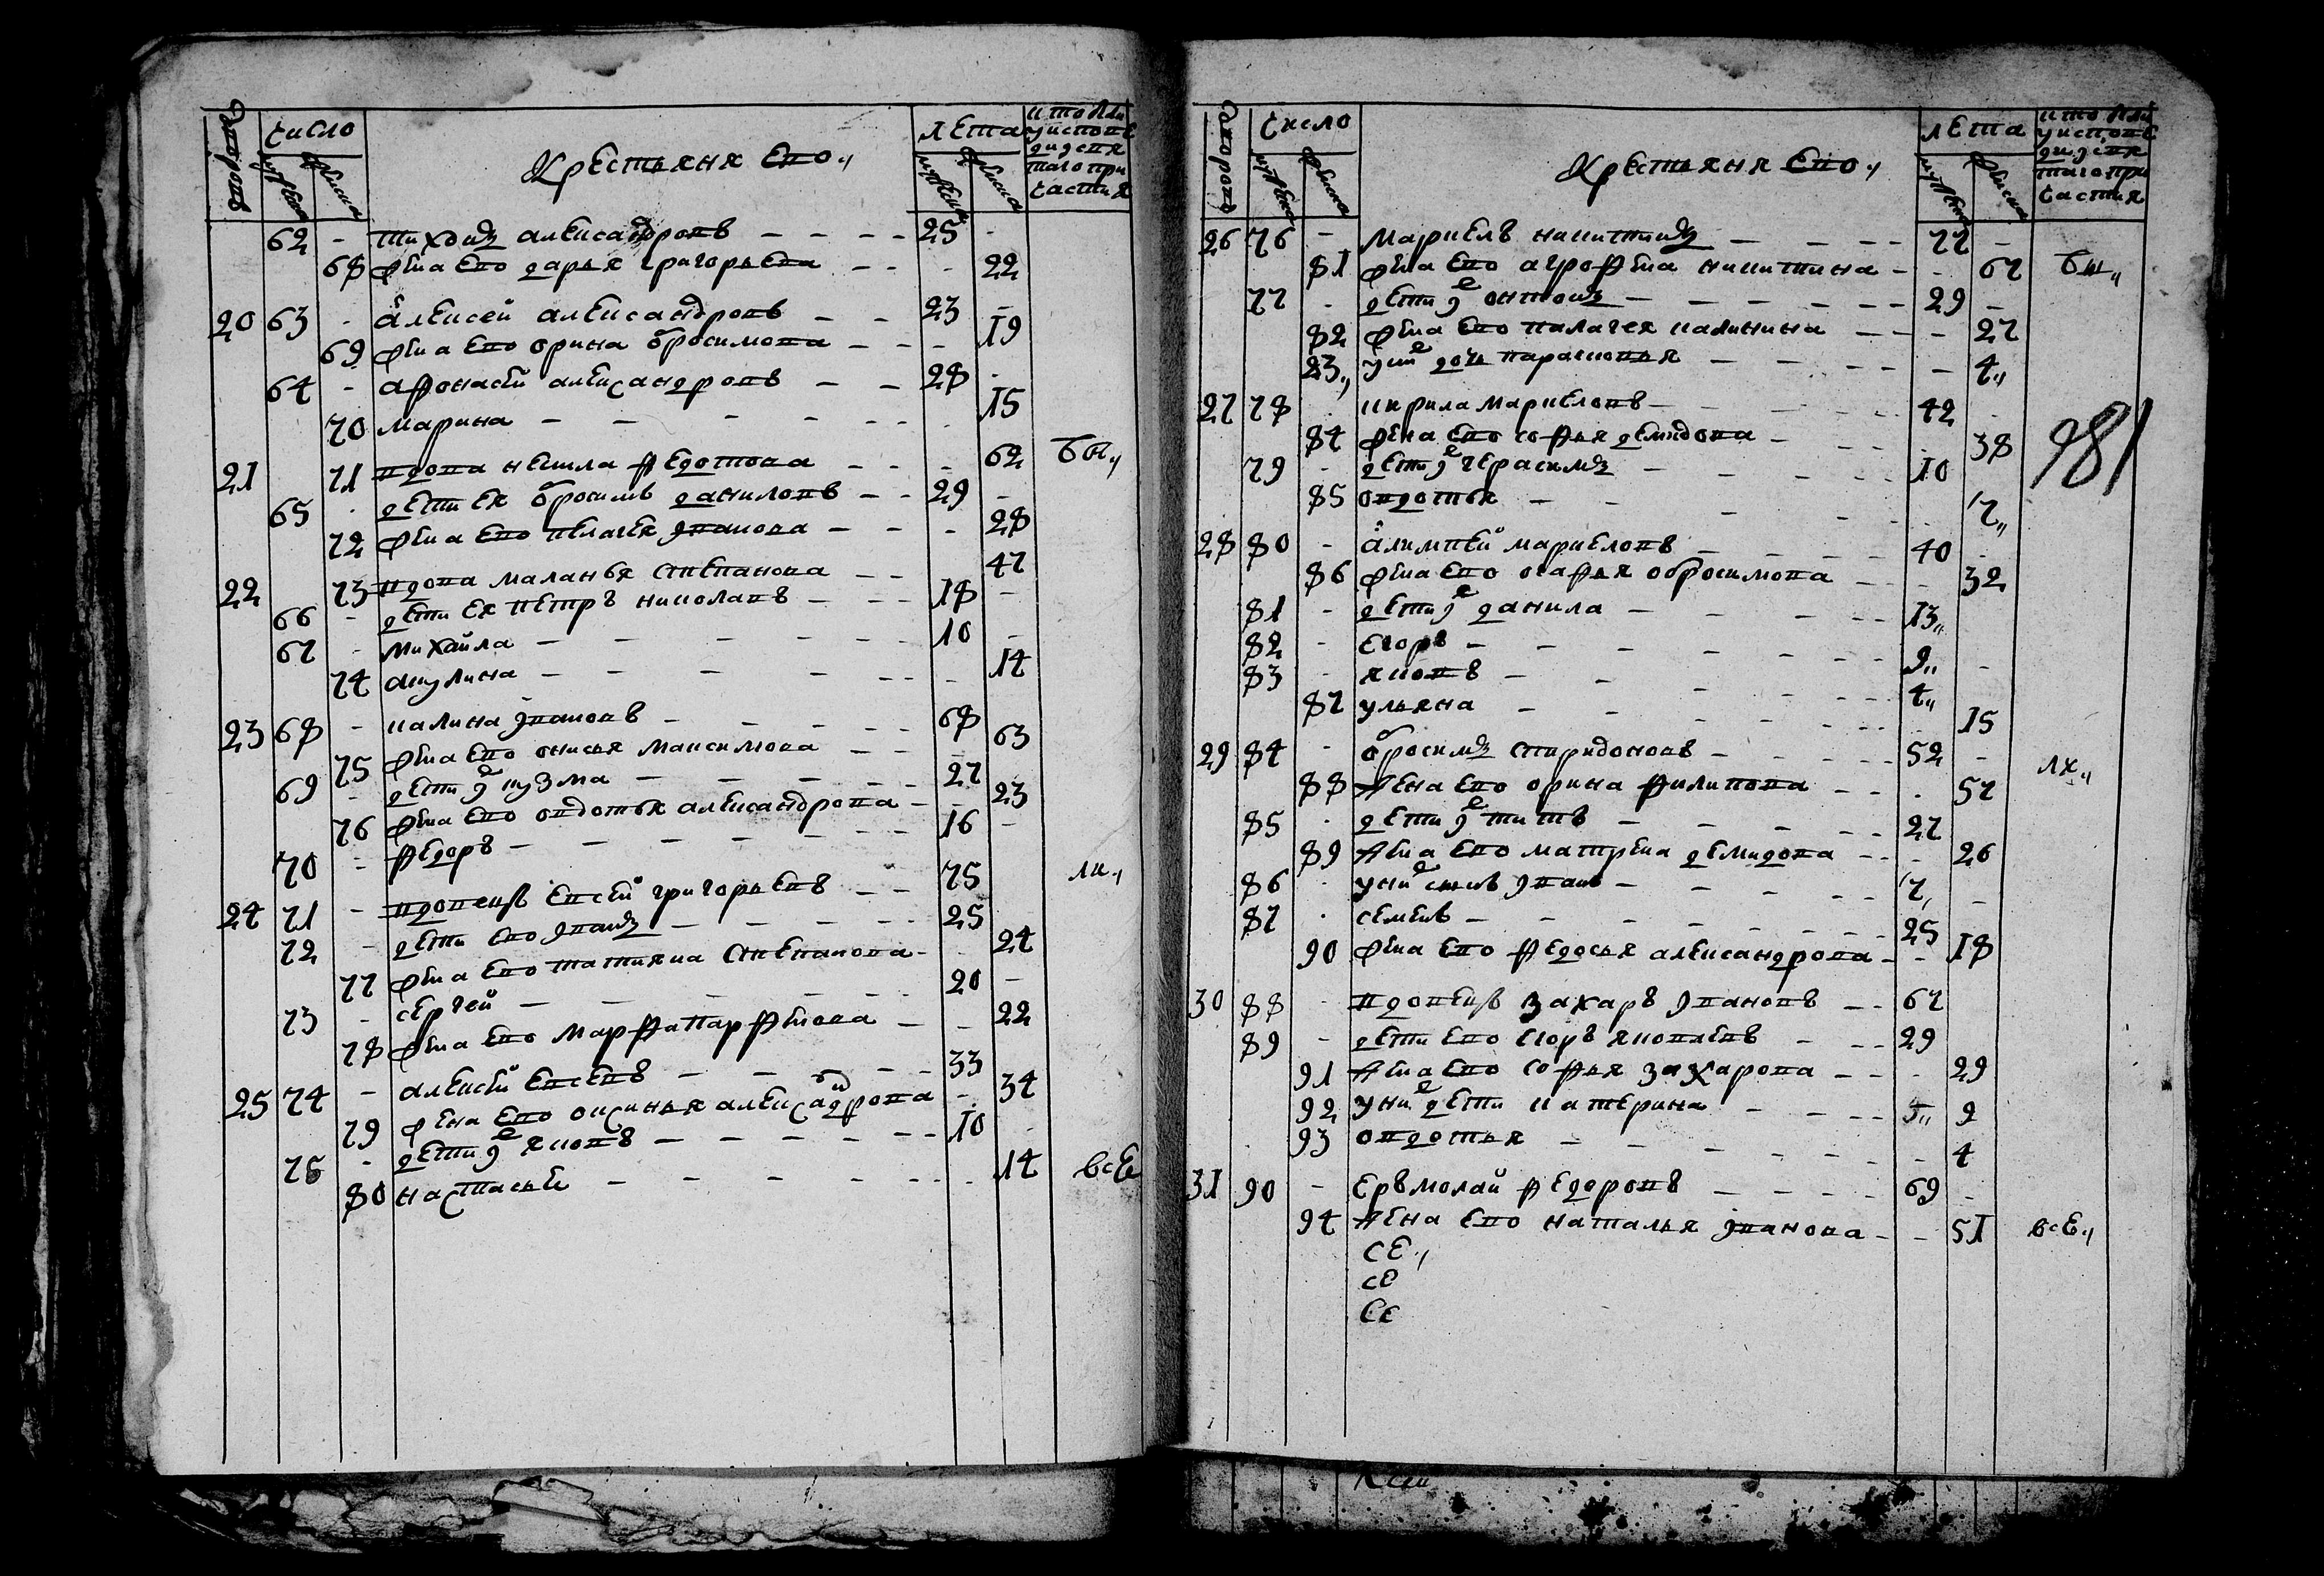 дворовъ число мужеска женска Крестьяня Ево лета мужеска женска кто был у исповеди и святаго причастия
62 - тихонъ александровъ - - - - 25 -
68 жена ево дарья григорьева - - - 22
20 63 - алексей александровъ - - 23 -
69 жена ево орина обросимова - - - 19
64 - афонасей александровъ - - 28 -
70 марина - - - - - - - 15
21 71 вдова некила федотова - - - 62 бы„
65 - дети ея обросимъ даниловъ - - 29 -
72 жена ево пелагея иванова - - - 28
22 73 вдова маланья степанова - - 47
66 - дети ея петръ николавъ - - - 18 -
67 - михайла - - - - - - 10 -
74 акулина - - - - - - - 14
23 68 - калина ивановъ - - - - 68
75 жена ево онисья максимова - - - 63
69 - дети ихъ кузма - - - - - 27
76 жена ево овдотья александрова - - 23
70 - федоръ - - - - - - 16 -
24 71 - вдовецъ евсей григорьевъ - - 75 ли„
72 - дети ево иванъ - - - - 25
77 жена ево татияна степанова - - 24
73 - сергей - - - - - 20 -
78 жена ево марфа парфенова - - 22
25 74 - алексей евсеевъ - - - - 33
79 жена ево оксинья александрова - 34
75 - дети ихъ яковъ - - - - - - 10
80 настасья - - - - - - - 14 всѣ
дворовъ число мужеска женска Крестьяня Ево„ лета мужеска женска кто был у исповеди и святаго причастия
26 76 - маркелъ никитинъ - - - - 77 -
81 жена ево агрофена никитина - - 67 бы„
77 - дети ихъ онтонъ - - - - - - 29 -
82 жена ево палагея калинина - - - 27
83„ у них дочь парасковья - - - - - 4„
27 78 - кирила маркеловъ - - - - 42 -
84 жена ево софья демидова - - - - 38
79 - дети ихъ герасимъ - - - - 10
85 овдотья - - - - - - 7„
28 80 - алимпей маркеловъ - - - - 40 -
86 жена ево осафья обросимова - - - 32
81 - дети ихъ данила - - - - - 13„
82 - егоръ - - - - - - - 9„ -
83 - яковъ - - - - - - 4„
87 ульяна - - - - - - - 15
29 84 - обросимъ спиридоновъ - - - - 52 - ли„
88 жена ево орина филипова - - - 57
85 - дети ихъ титъ - - - - - 27
89 жена ево матрена демидова - - - 26
86 - у них сынъ иванъ - - - - - 7„ -
87 - семенъ - - - - - - - 25
90 жена ево федосья александрова - - 18
30 88 - вдовецъ захаръ ивановъ - - 67
89 - дети ево егоръ яковлевъ - - - 29
91 жена ево софья захарова - - - 29
92 у них дети катерина - - - - 5„ 9
93 овдотья - - - - - - - 4
31 90 - ерьмолай федоровъ - - - - 69 -
94 жена ево наталья иванова - - 51 всѣ„
СЕ„
СЕ
СЕ
981